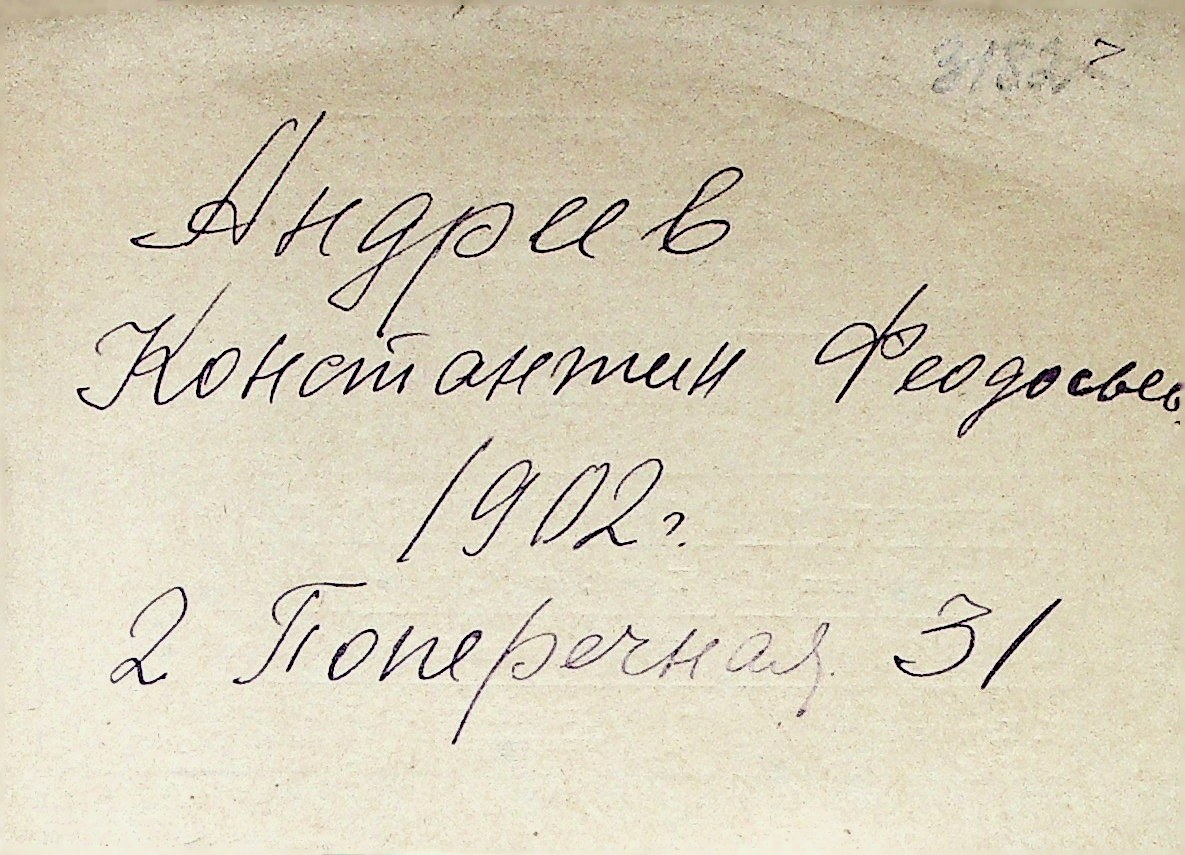 Андреев
Константин Феодосьев
1902 г.
2 Поперечная 31